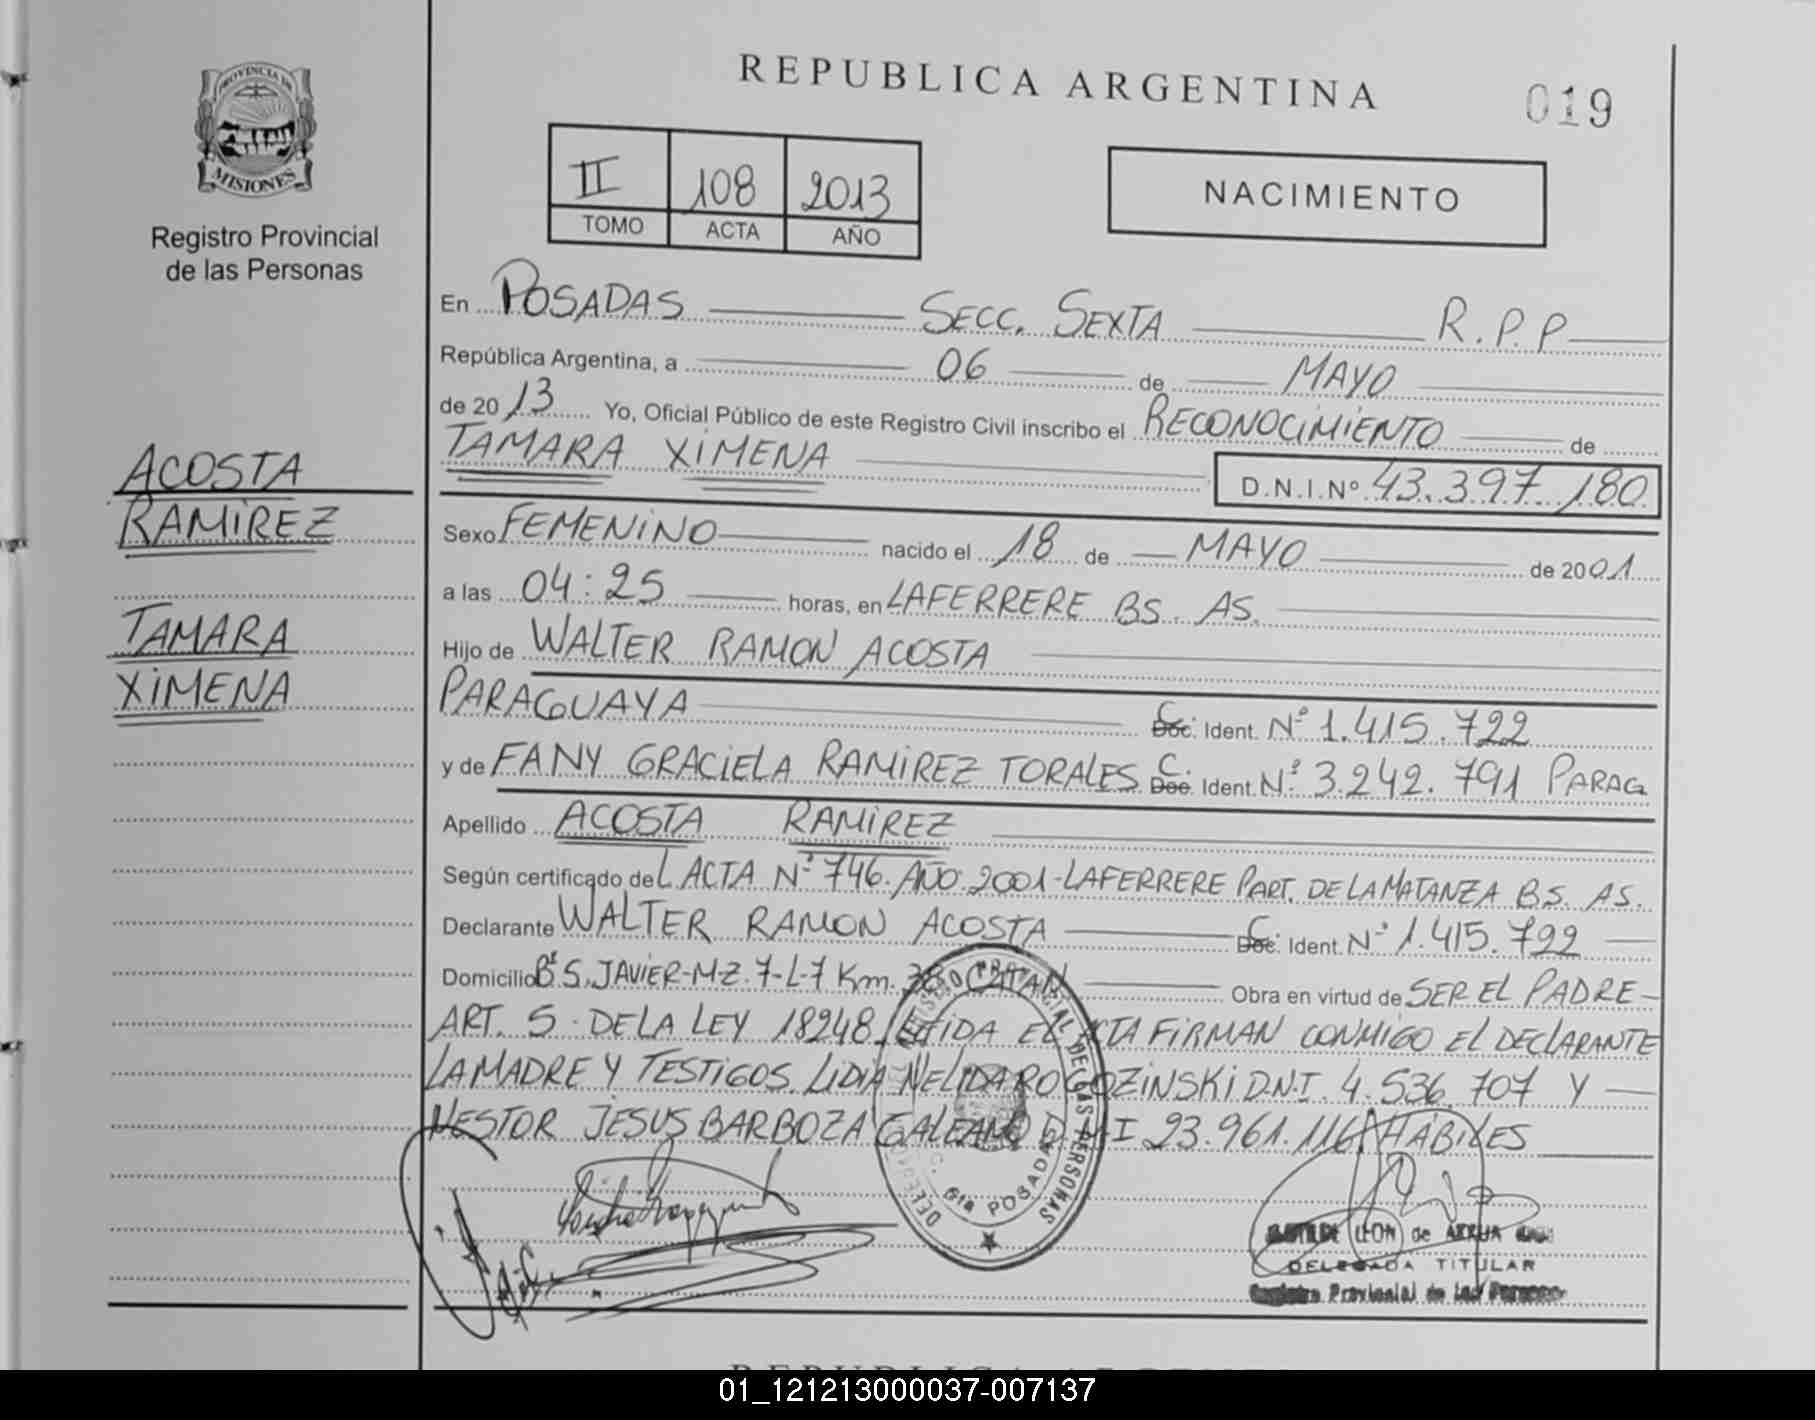 REPUBLICA ARGENTINA
019
PROVINCIA DE
MISIONES
Registro Provincial
de las Personas
II 108 2013
TOMO ACTA AÑO
NACIMIENTO
En POSADAS SECC. SEXTA R.P.P
República Argentina, a 06 de MAYO
de 2013 Yo, Oficial Público de este Registro Civil inscribo el RECONOCIMIENTO de
TAMARA XIMENA D.N.I.Nº 43.397.180
ACOSTA
RAMIREZ
TAMARA
XIMENA
Sexo FEMENINO nacido el 18 de MAYO de 2001
a las 04:25 horas, en LAFERRERE BS. AS.
Hijo de WALTER RAMON ACOSTA
PARAGUAYA C. Ident. Nº 1.415.722
y de FANY GRACIELA RAMIREZ TORALES C. Ident. Nº 3.242.791 PARAG
Apellido ACOSTA RAMIREZ
Según certificado del ACTA Nº 746. AÑO 2001-LAFERRERE PART. DE LA MATANZA BS. AS.
Declarante WALTER RAMON ACOSTA C. Ident. Nº 1.415.722
Domicilio Bº S. JAVIER-MZ.7-L-7 Km. Obra en virtud de SER EL PADRE-
ART. 5. DE LA LEY 18248. LEIDA EL ACTA FIRMAN CONMIGO EL DECLARANTE
LA MADRE Y TESTIGOS LIDIA NELIDA ROGOZINSKI D.N.I. 4.536.707 Y
NESTOR JESUS BARBOZA GALEANO D.N.I 23.961.116 HABILES
DE LAS PERSONAS
6ta POSADAS
LEON de
DELEGADA TITULAR
Registro Provincial de las Personas
01_121213000037-007137